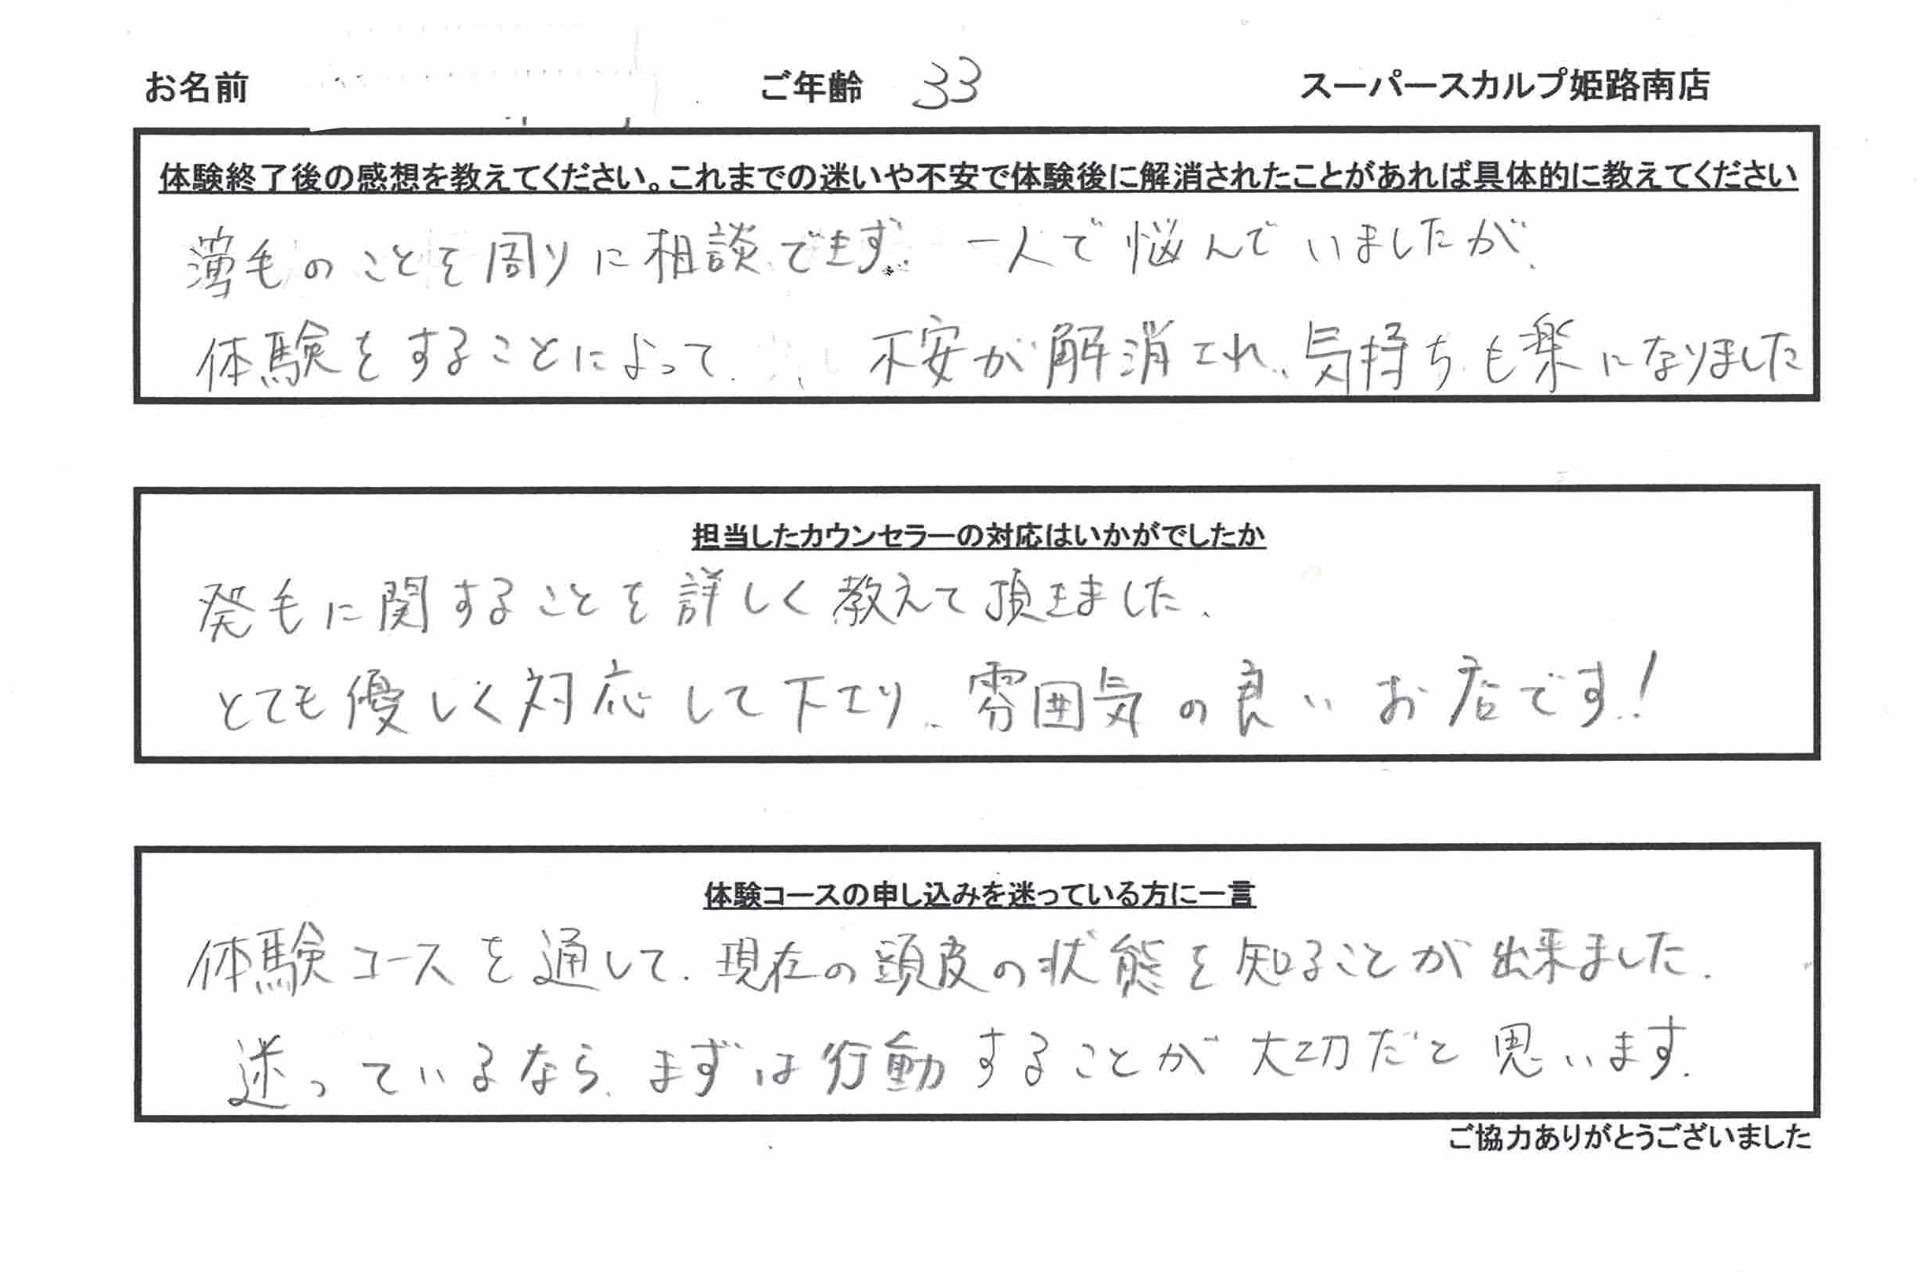 お名前 ご年齢 33 スーパースカルプ姫路南店
体験終了後の感想を教えてください。これまでの迷いや不安で体験後に解消されたことがあれば具体的に教えてください
薄毛のことを周りに相談できず、一人で悩んでいましたが、
体験をすることによって、不安が解消され、気持ちも楽になりました
担当したカウンセラーの対応はいかがでしたか
発毛に関することを詳しく教えて頂きました、
とても優しく対応して下さり、雰囲気の良いお店です!
体験コースの申し込みを迷っている方に一言
体験コースを通して、現在の頭皮の状態を知ることが出来ました.
迷っているなら、まずは行動することが大切だと思います.
ご協力ありがとうございました